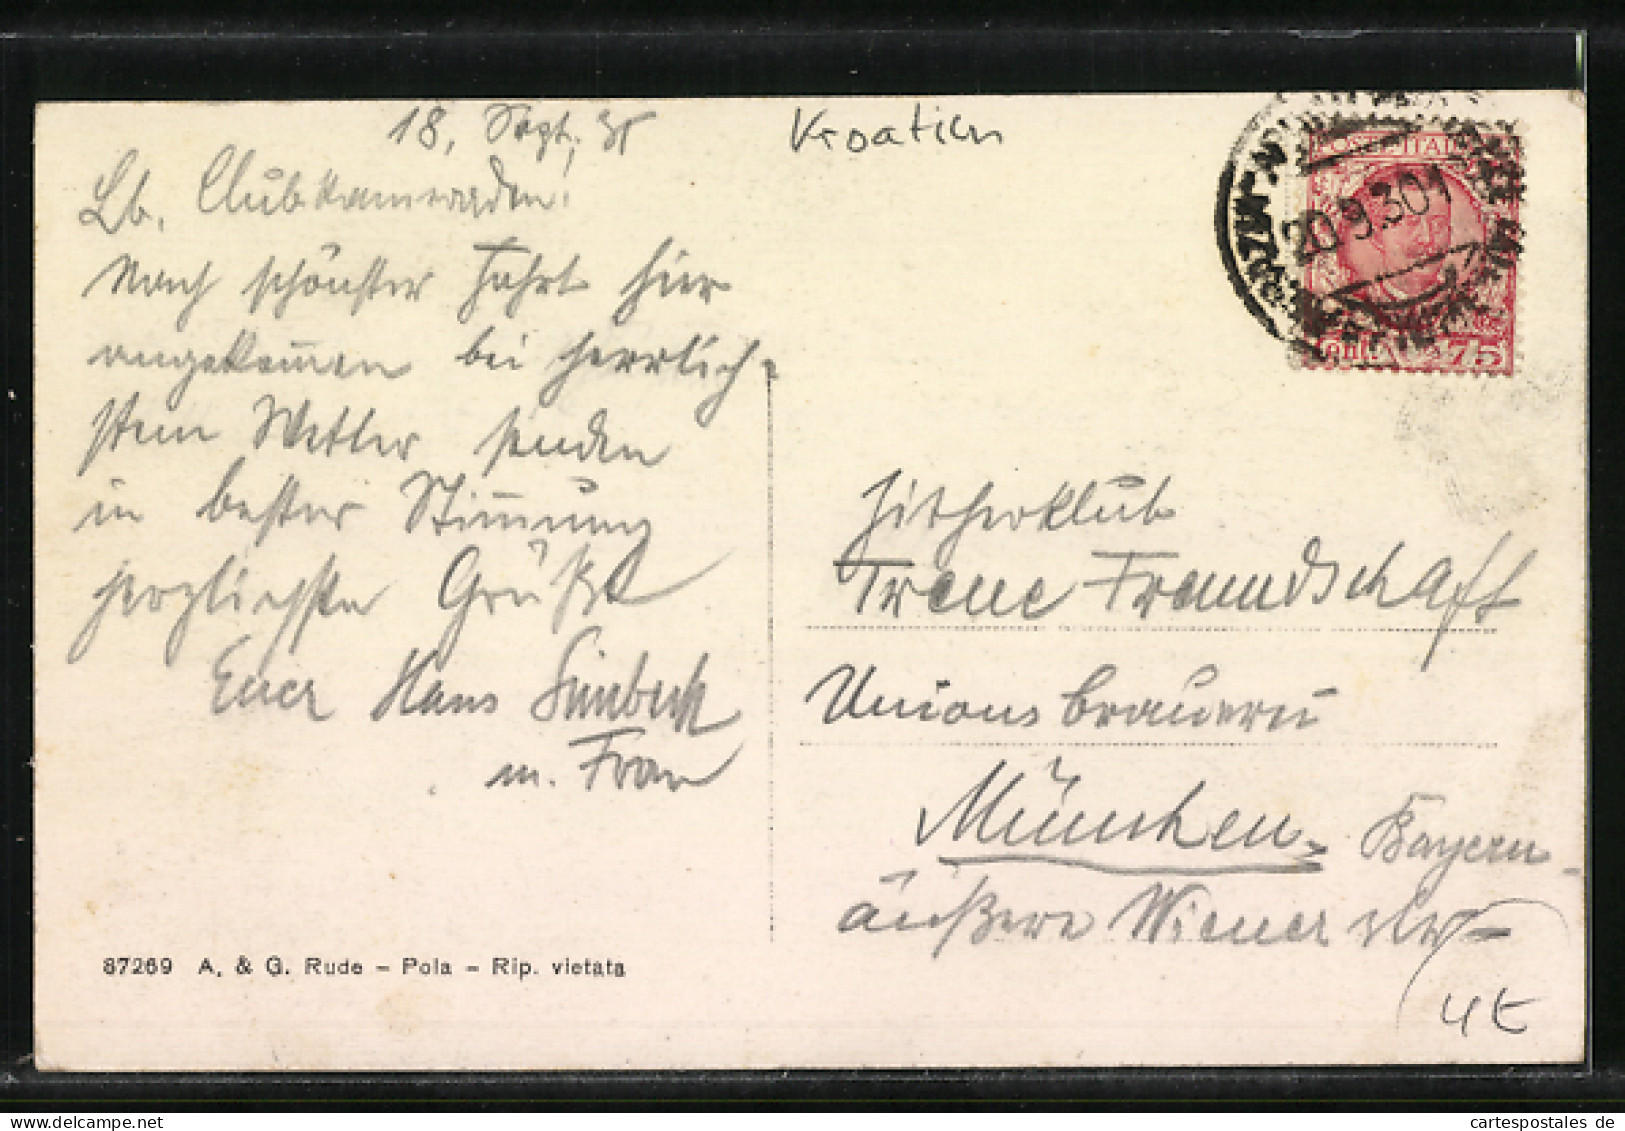 18. Sept. 30
Lb. Clubkameraden!
Nach schönster Fahrt hier
angekommen bei herrlich-
stem Wetter senden
in bester Stimmung
herzlichste Grüße
Euer Hans
m. Frau
Kroatien
POSTE ITALI
20.9.30
Cent. 75
Zitherklub
Treue Freundschaft
Unionsbrauerei
München, Bayern
äußere Wiener Str
4t
87269 A. & G. Rude - Pola - Rip. vietata
cartespostales de